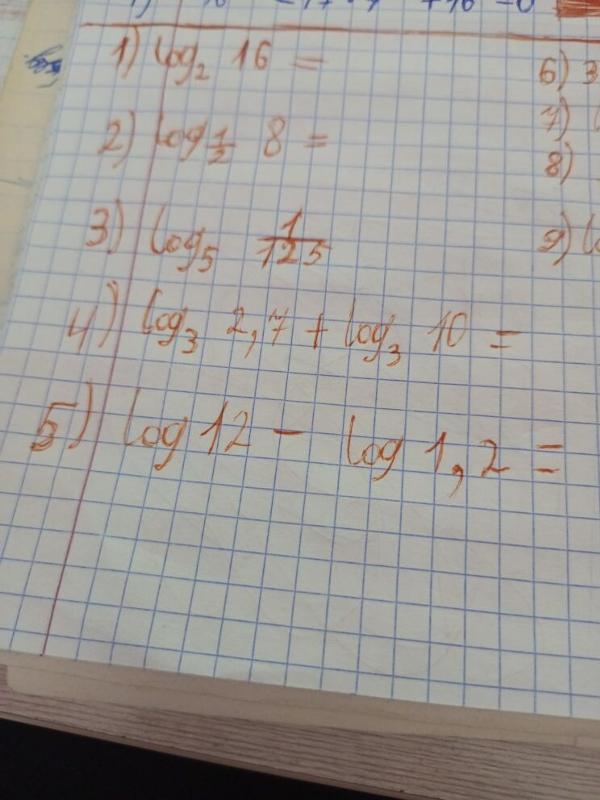 1) log₂ 16 =
2) log½ 8 =
3) log₅ 1/125
4) log₃ 2,7 + log₃ 10 =
5) log 12 - log 1,2 =
6) 3
7) (
8)
9)